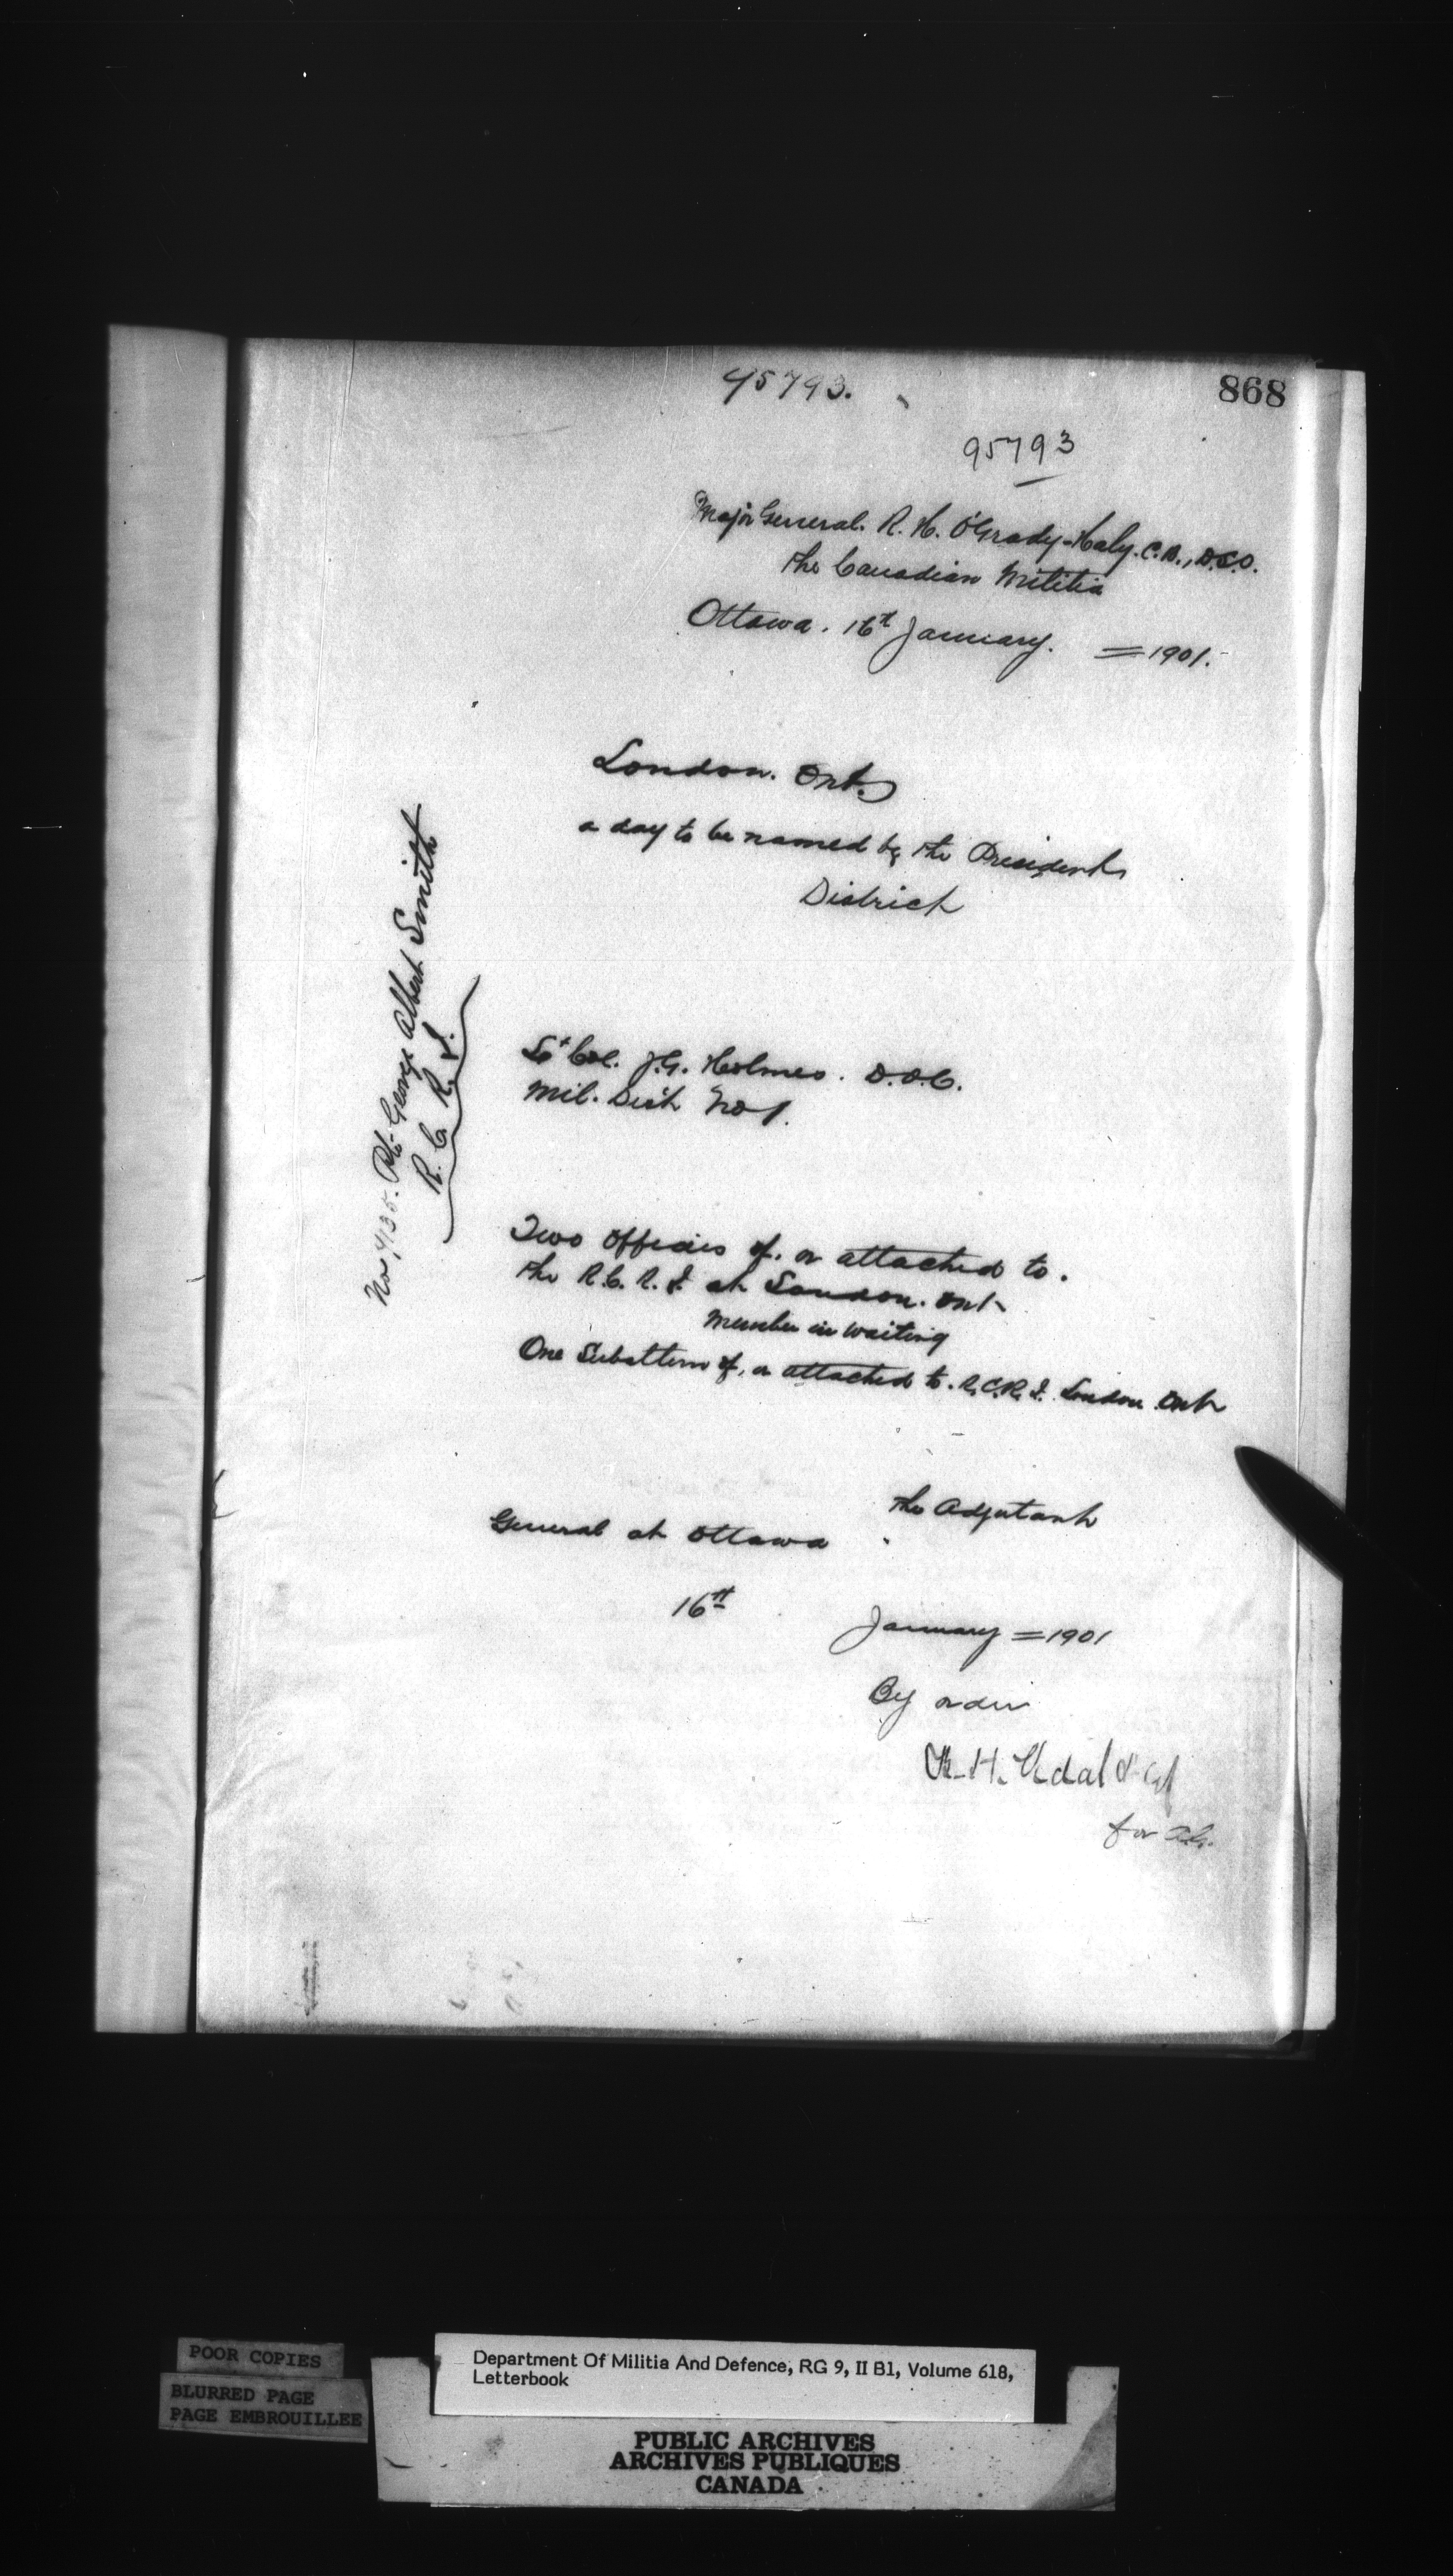 45793.
868
95793
Major General. R. H. O'Grady-Haly. C.B., D.S.O.
The Canadian Militia
Ottawa. 16th January. = 1901.
London. Ont.
a day to be named by the President
District
No 7135. Pte George Albert Smith
R. C. R. I.
Lt Col. J. G. Holmes. D.O.C.
Mil. Dist No 1.
Two Officers of, or attached to.
the R.C.R.I. at London. Ont
Member in waiting
One Subaltern of, or attached to. R.C.R.I. London Ont
The Adjutant
General at Ottawa
16th
January = 1901
By order
B. H. Vidal Lt Col
for A.G.
POOR COPIES
BLURRED PAGE
PAGE EMBROUILLEE
Department Of Militia And Defence, RG 9, II B1, Volume 618,
Letterbook
PUBLIC ARCHIVES
ARCHIVES PUBLIQUES
CANADA